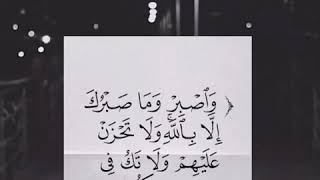 ﴿ وَٱصۡبِرۡ وَمَا صَبۡرُكَ
إِلَّا بِٱللَّهِۚ وَلَا تَحۡزَنۡ
عَلَيۡهِمۡ وَلَا تَكُ فِي